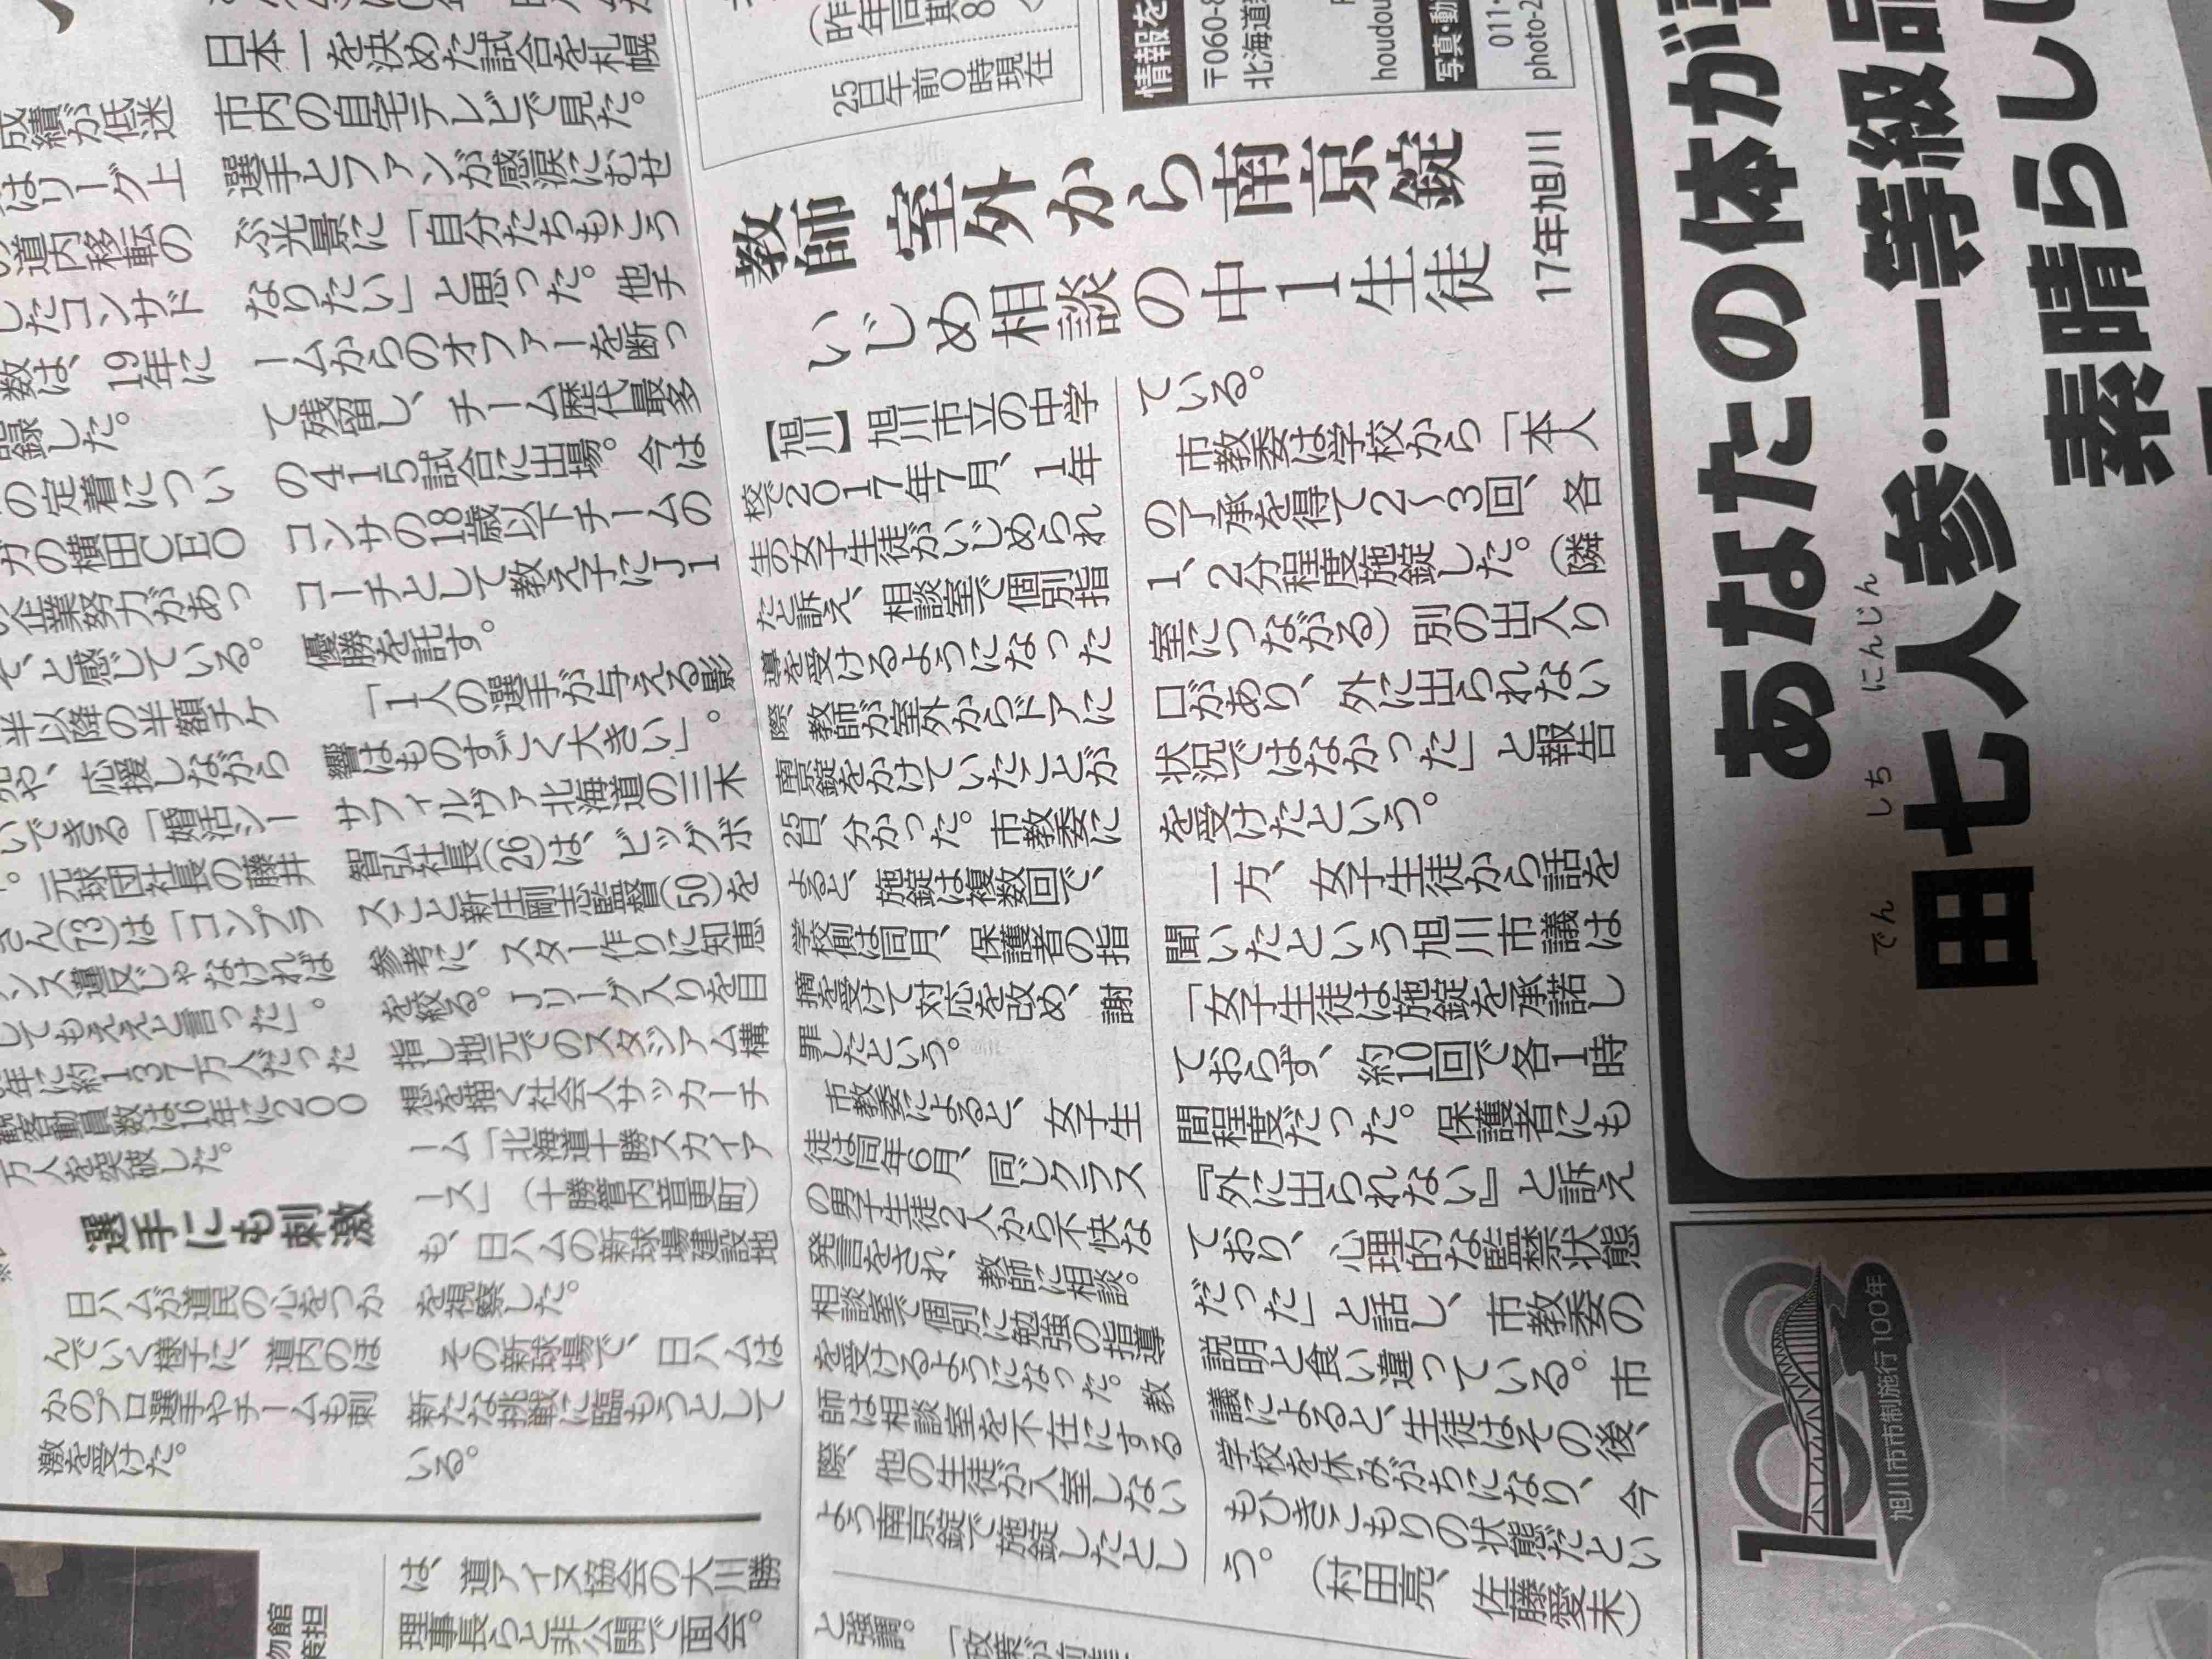 成績が低迷
はリーグ上
道内移転の
したコンサド
数は、19年に
録した。
の定着につい
の横田CEO
企業努力があっ
と感じている。
半以降の半額チケ
や、応援しながら
いできる「婚活シー
。元球団社長の藤井
さん(73)は「コンプラ
ンス違反じゃなければ
してもええと言った」。
年に約137万人だった
観客動員数は16年に200
万人を突破した。
選手にも刺激
日ハムが道民の心をつか
んでいく様子に、道内のほ
かのプロ選手やチームも刺
激を受けた。
日本一を決めた試合を札幌
市内の自宅テレビで見た。
選手とファンが感涙にむせ
ぶ光景に「自分たちもこう
なりたい」と思った。他チ
ームからのオファーを断っ
て残留し、チーム歴代最多
の415試合に出場。今は
コンサの18歳以下チームの
コーチとして教え子にJ1
優勝を託す。
「1人の選手が与える影
響はものすごく大きい」。
サフィルヴァ北海道の三木
智弘社長(26)は、ビッグボ
スこと新庄剛志監督(50)を
参考に、スター作りに知恵
を絞る。Jリーグ入りを目
指し地元でのスタジアム構
想を描く社会人サッカーチ
ーム「北海道十勝スカイア
ース」(十勝管内音更町)
も、日ハムの新球場建設地
を視察した。
その新球場で、日ハムは
新たな挑戦に臨もうとして
いる。
は、道アイヌ協会の大川勝
理事長らと非公開で面会。
25日午前0時現在
情報を
〒060-8
北海道
houdou
写真・動
011-
photo-2
教師 室外から南京錠
いじめ相談の中1生徒
17年旭川
【旭川】旭川市立の中学
校で2017年7月、1年
生の女子生徒がいじめられ
たと訴え、相談室で個別指
導を受けるようになった
際、教師が室外からドアに
南京錠をかけていたことが
25日、分かった。市教委に
よると、施錠は複数回で、
学校側は同月、保護者の指
摘を受けて対応を改め、謝
罪したという。
市教委によると、女子生
徒は同年6月、同じクラス
の男子生徒2人から不快な
発言をされ、教師に相談。
相談室で個別に勉強の指導
を受けるようになった。教
師は相談室を不在にする
際、他の生徒が入室しない
よう南京錠で施錠したとし
ている。
市教委は学校から「本人
の了承を得て2~3回、各
1、2分程度施錠した。(隣
室につながる)別の出入り
口があり、外に出られない
状況ではなかった」と報告
を受けたという。
一方、女子生徒から話を
聞いたという旭川市議は
「女子生徒は施錠を承諾し
ておらず、約10回で各1時
間程度だった。保護者にも
『外に出られない』と訴え
ており、心理的な監禁状態
だった」と話し、市教委の
説明と食い違っている。市
議によると、生徒はその後、
学校を休みがちになり、今
もひきこもりの状態だとい
う。(村田亮、佐藤愛未)
と強調。
あなたの体が
田七人参・一等級
でん しち にんじん
素晴らし
100
旭川市市制施行100年